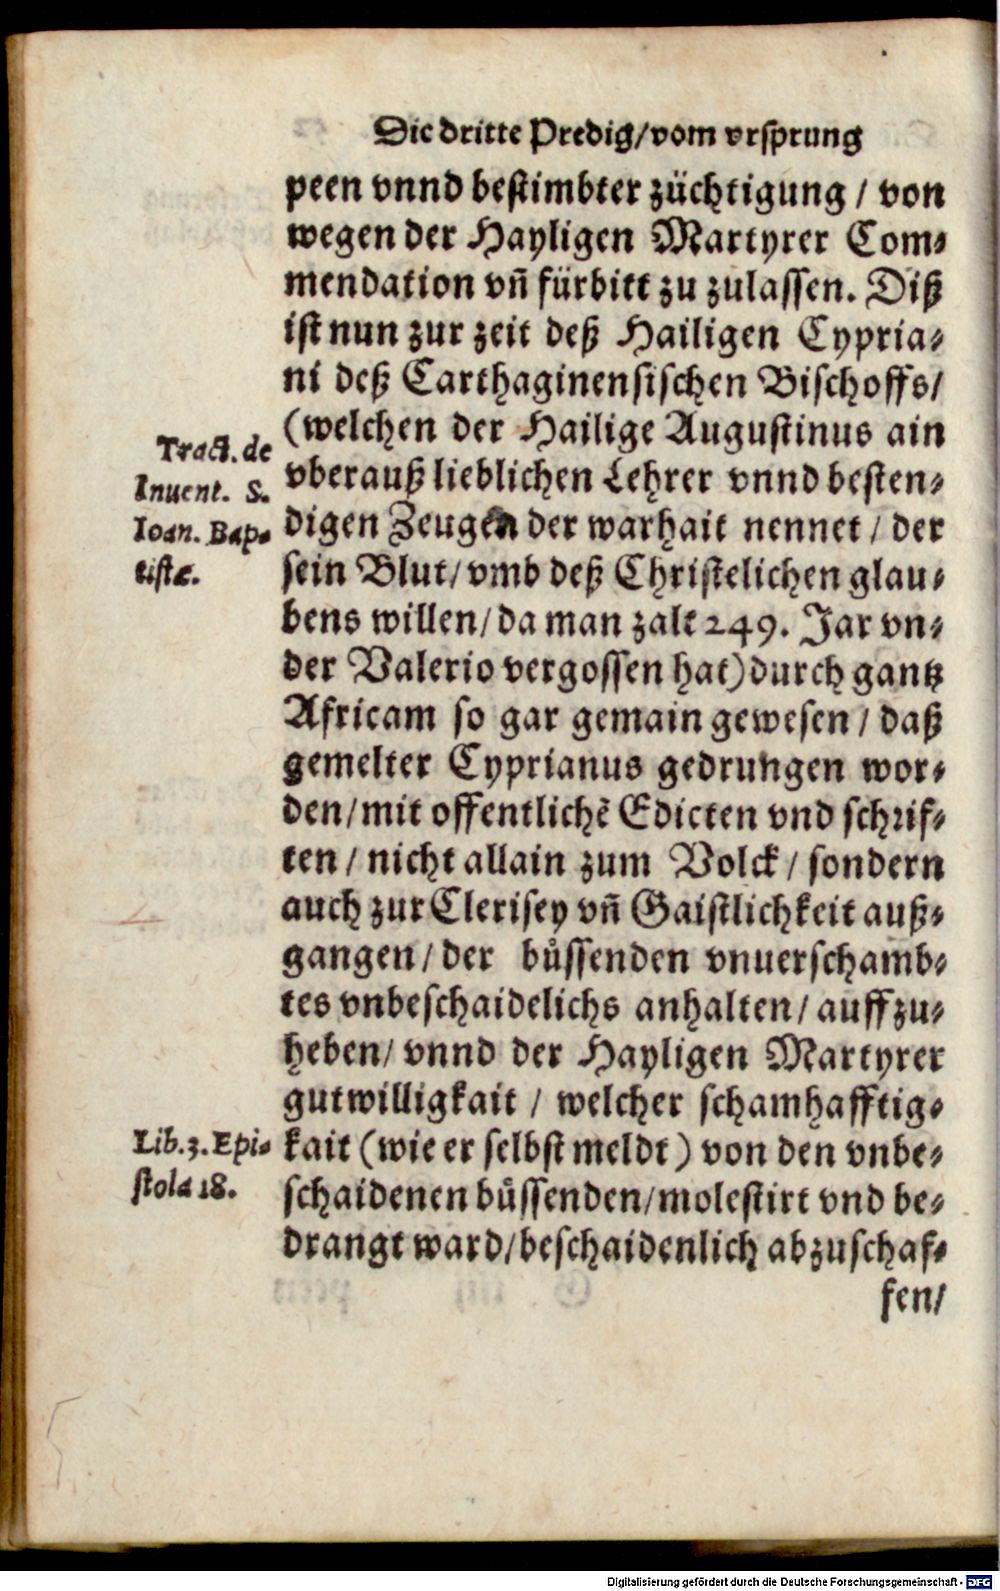 Die dritte Predig/vom vrsprung
peen vnnd bestimbter züchtigung / von
wegen der Hayligen Martyrer Com-
mendation vñ fürbitt zu zulassen. Diß
ist nun zur zeit deß Hailigen Cypria-
ni deß Carthaginensischen Bischoffs/
(welchen der Hailige Augustinus ain
vberauß lieblichen Lehrer vnnd besten-
digen Zeugen der warhait nennet / der
sein Blut/vmb deß Christelichen glau-
bens willen/da man zalt 249. Jar vn-
der Valerio vergossen hat)durch gantz
Africam so gar gemain gewesen / daß
gemelter Cyprianus gedrungen wor-
den/mit offentlichẽ Edicten vnd schrif-
ten / nicht allain zum Volck / sondern
auch zur Clerisey vñ Gaistlichkeit auß-
gangen/der bůssenden vnuerschamb-
tes vnbeschaidelichs anhalten/auff zu-
heben/ vnnd der Hayligen Martyrer
gutwilligkait / welcher schamhafftig-
kait (wie er selbst meldt) von den vnbe-
schaidenen bůssenden/molestirt vnd be-
drangt ward/beschaidenlich abzuschaf-
fen/
Tract. de
Inuent. S.
Ioan. Bap-
tistæ.
Lib.3.Epi-
stola 18.
Digitalisierung gefördert durch die Deutsche Forschungsgemeinschaft - DFG